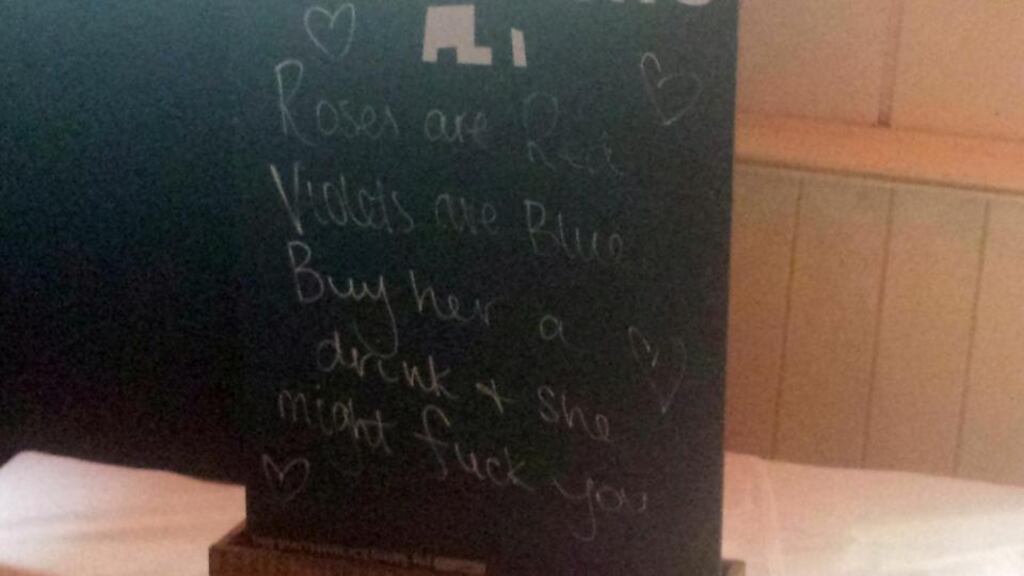 Roses are Red
Violets are Blue
Buy her a
drink + she
might fuck you